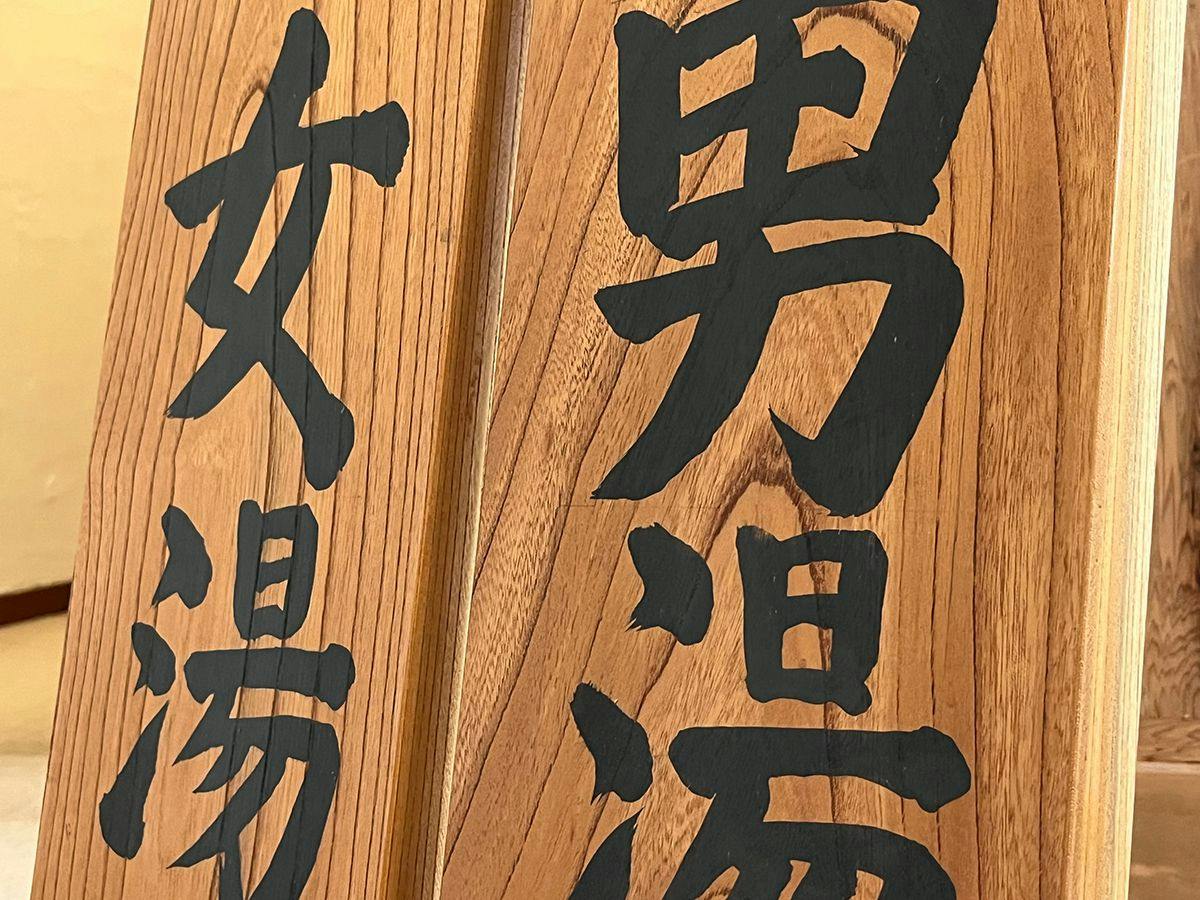 男湯
女湯